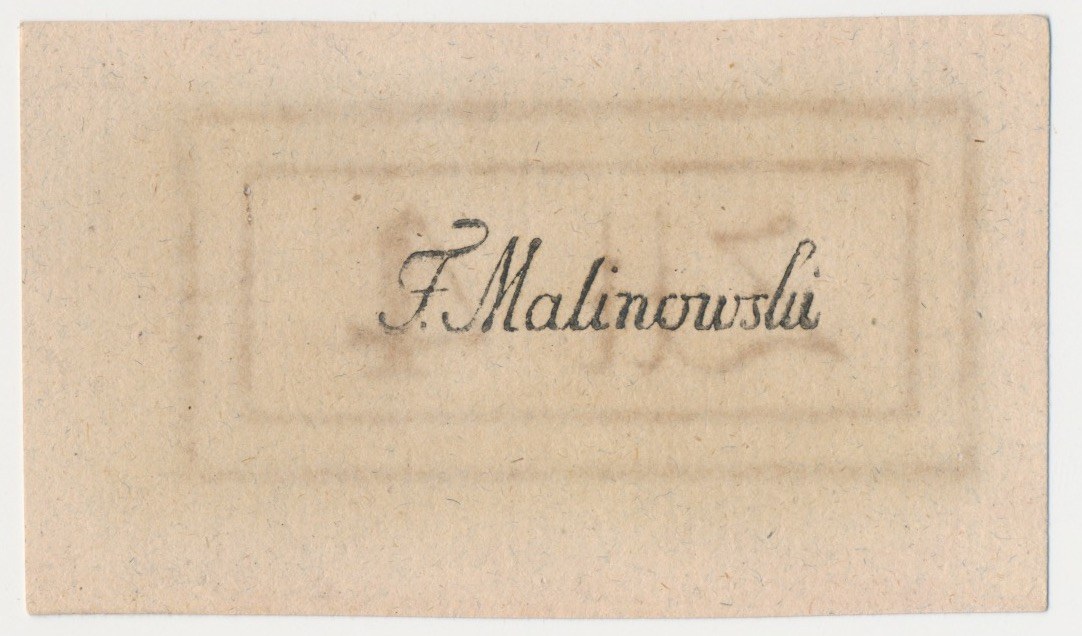 F. Malinowski